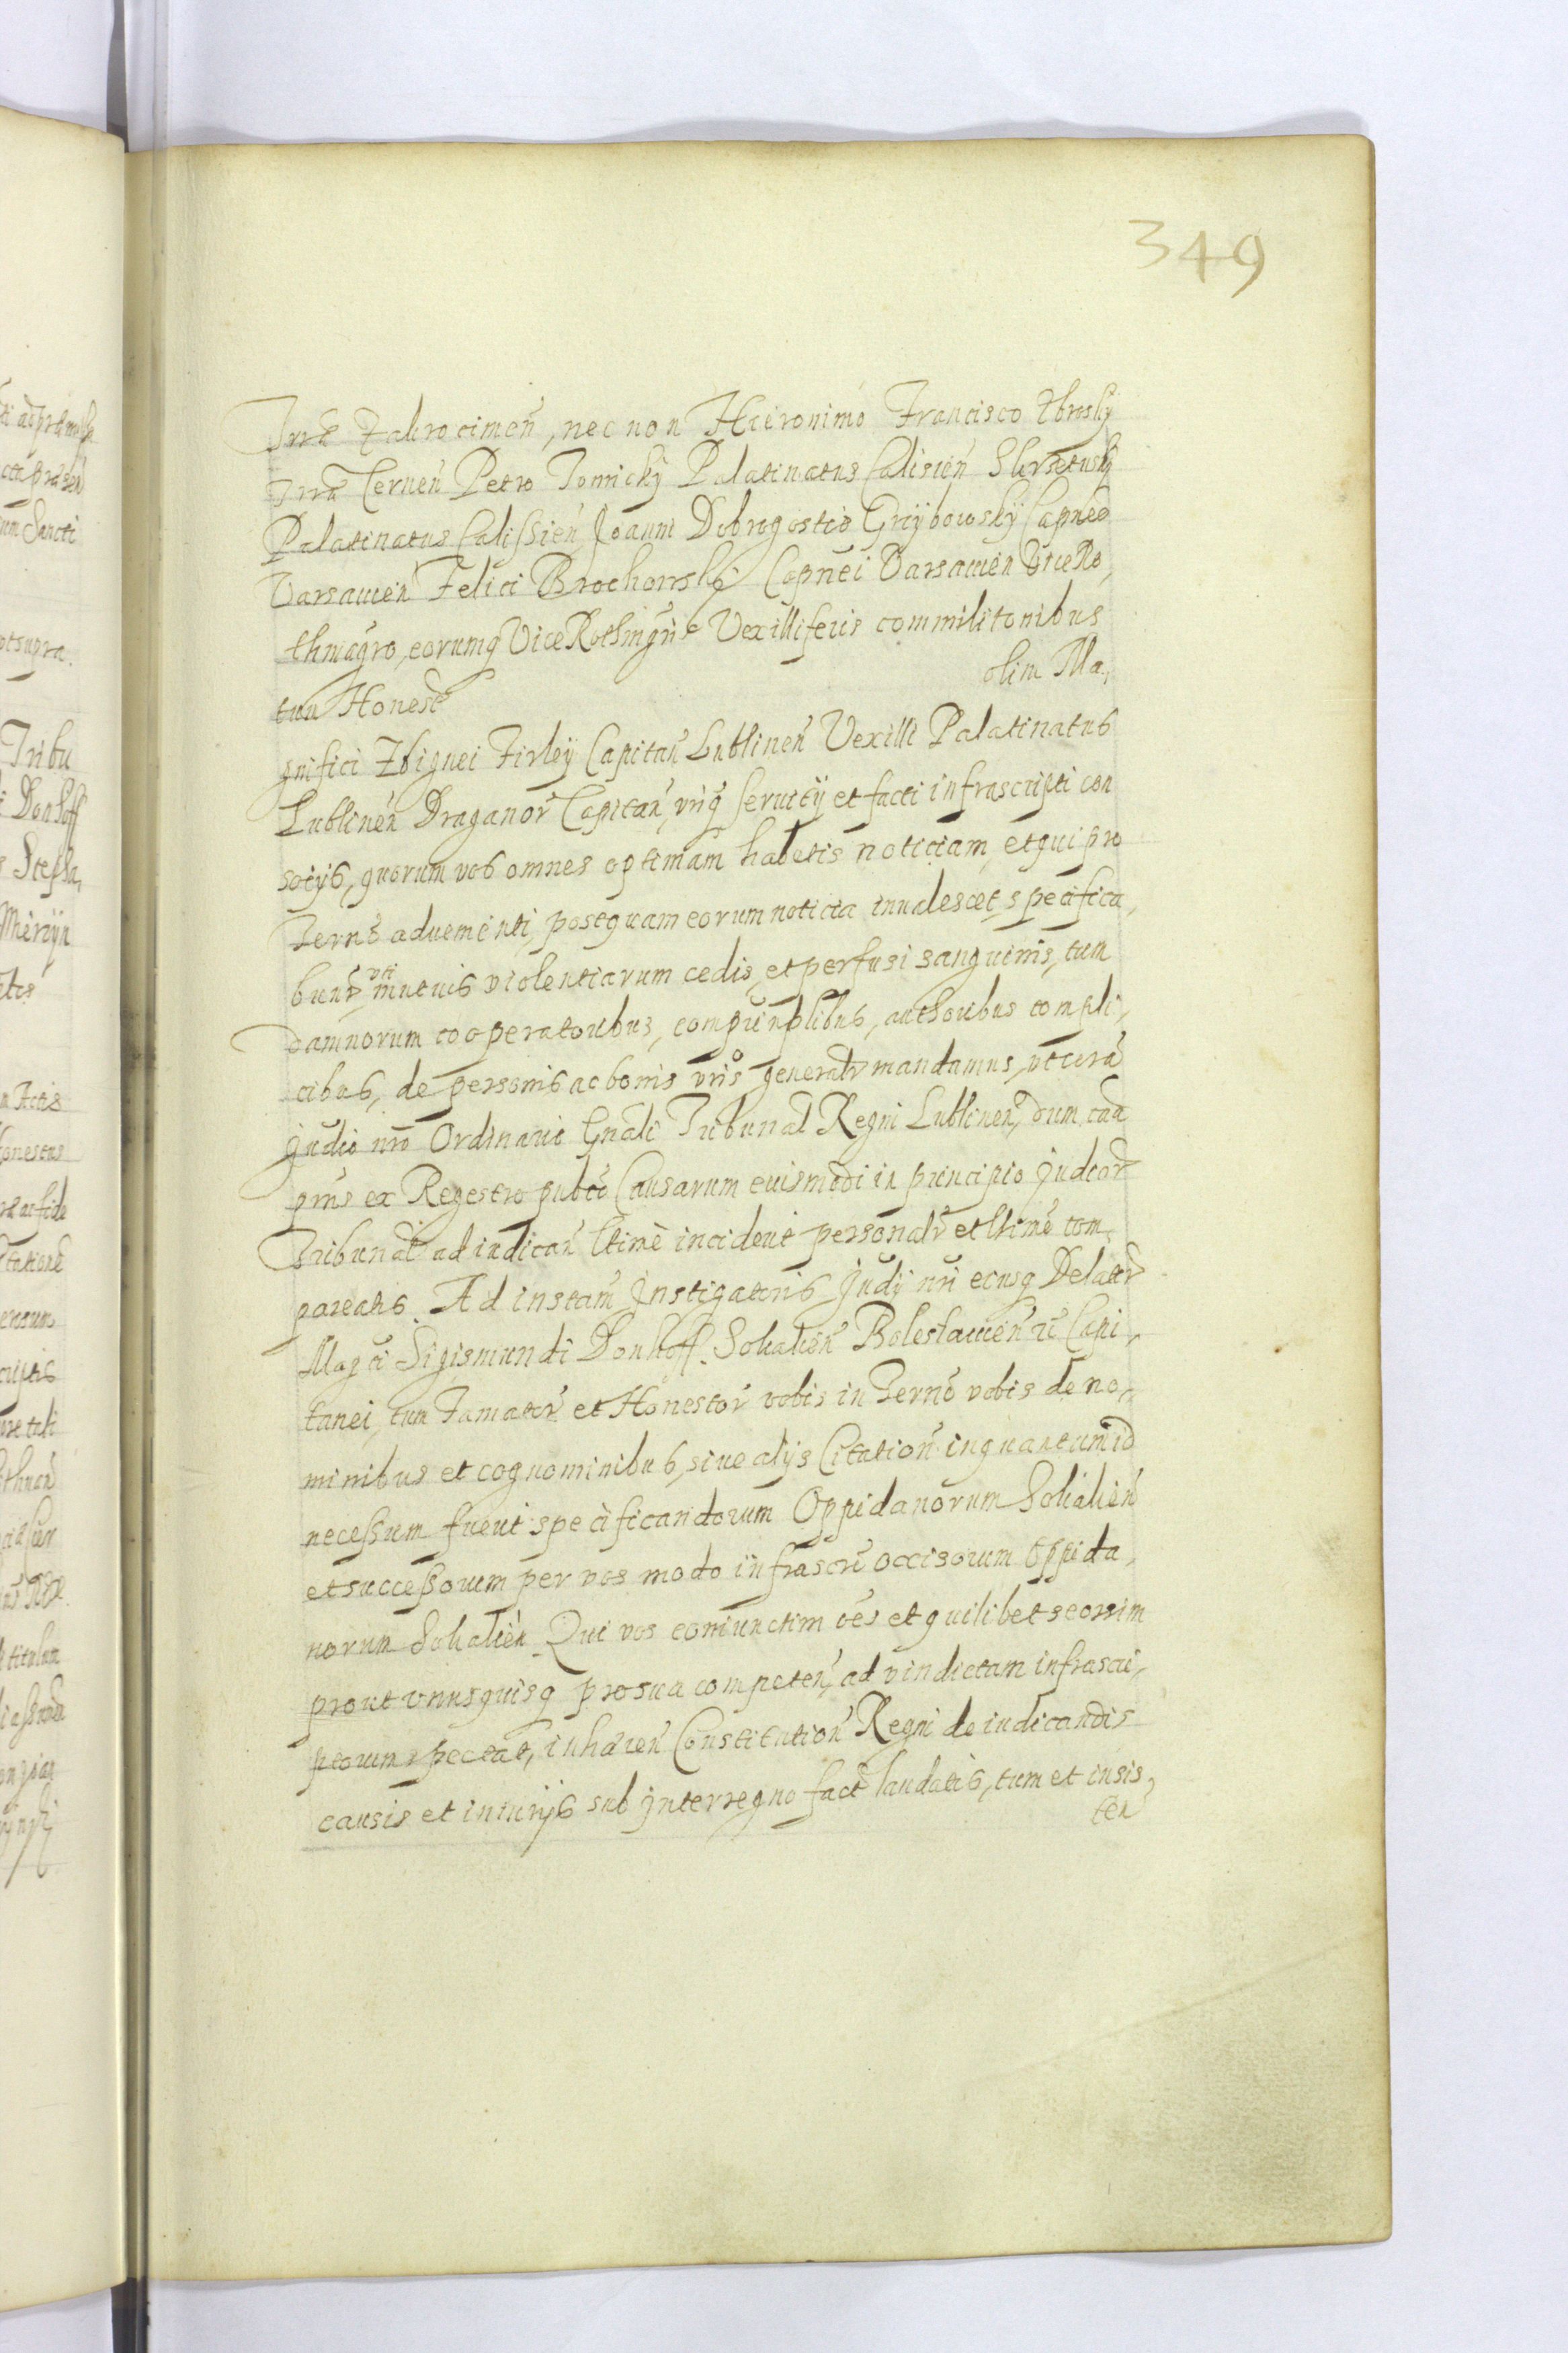 349
Trrae Zakrocimen, nec non Hieronimo Francisco Zbrosky
Trrae Cernen Petro Tomicky Palatinatus Calisien
Palatinatus Calissien Joanni Dobrogostio Grzybowsky Capneo
Varsauien Felici Brochowsky Capnei Varsauien Vice Ro,
thmagro, eorumq Vice Rothmgris Vexilliferis commilitonibus
tum Honest olim Ma,
gnifici Zbignei Firley Capitan Lublinen Vexilli Palatinatus
Lublinen Draganor Capitan, vriq seruitij et facti infrascripti con
socijs, quorum vos omnes optimam habetis noticiam, et qui pro
Termo aduementi, postquam eorum noticia inualescet, specifica,
bunt, vti mutuis violentiarum cedis, et perfusi sanguinis, tum
damnorum cooperatoribus, comprinplibus, authoribus compli,
cibus, de personis ac bonis vris generalr mandamus, vt cora
Judio nro Ordinario Gnali Tribunal Regni Lublinen, dum caa
pns ex Regestro public Causarum euismodi in principio Judior
Tribunal ad iudican ltime inciderit personalr et ltime com,
pareatis. Ad instam Instigatoris Judij nri eiusq Delator
Magci Sigismundi Donhoff Sokalien Boleslauien et Capi,
tanei, tum Famator et Honestor vobis in Termo vobis de no,
minibus et cognominibus, siue alijs Citation inquantum id
necessum fuerit specificandorum Oppidanorum Sokalien
et successorum per vos modo infrascr occisorum Oppida,
norum Sokalien. Qui vos coniunctim oes et quilibet seorsim
prout vnusquisq pro sua competen, ad vindictam infrascri,
ptorum spectat, inhaeren Constitution Regni de iudicandis
causis et iniurijs sub Interregno fact laudatis, tum et insis,
ten